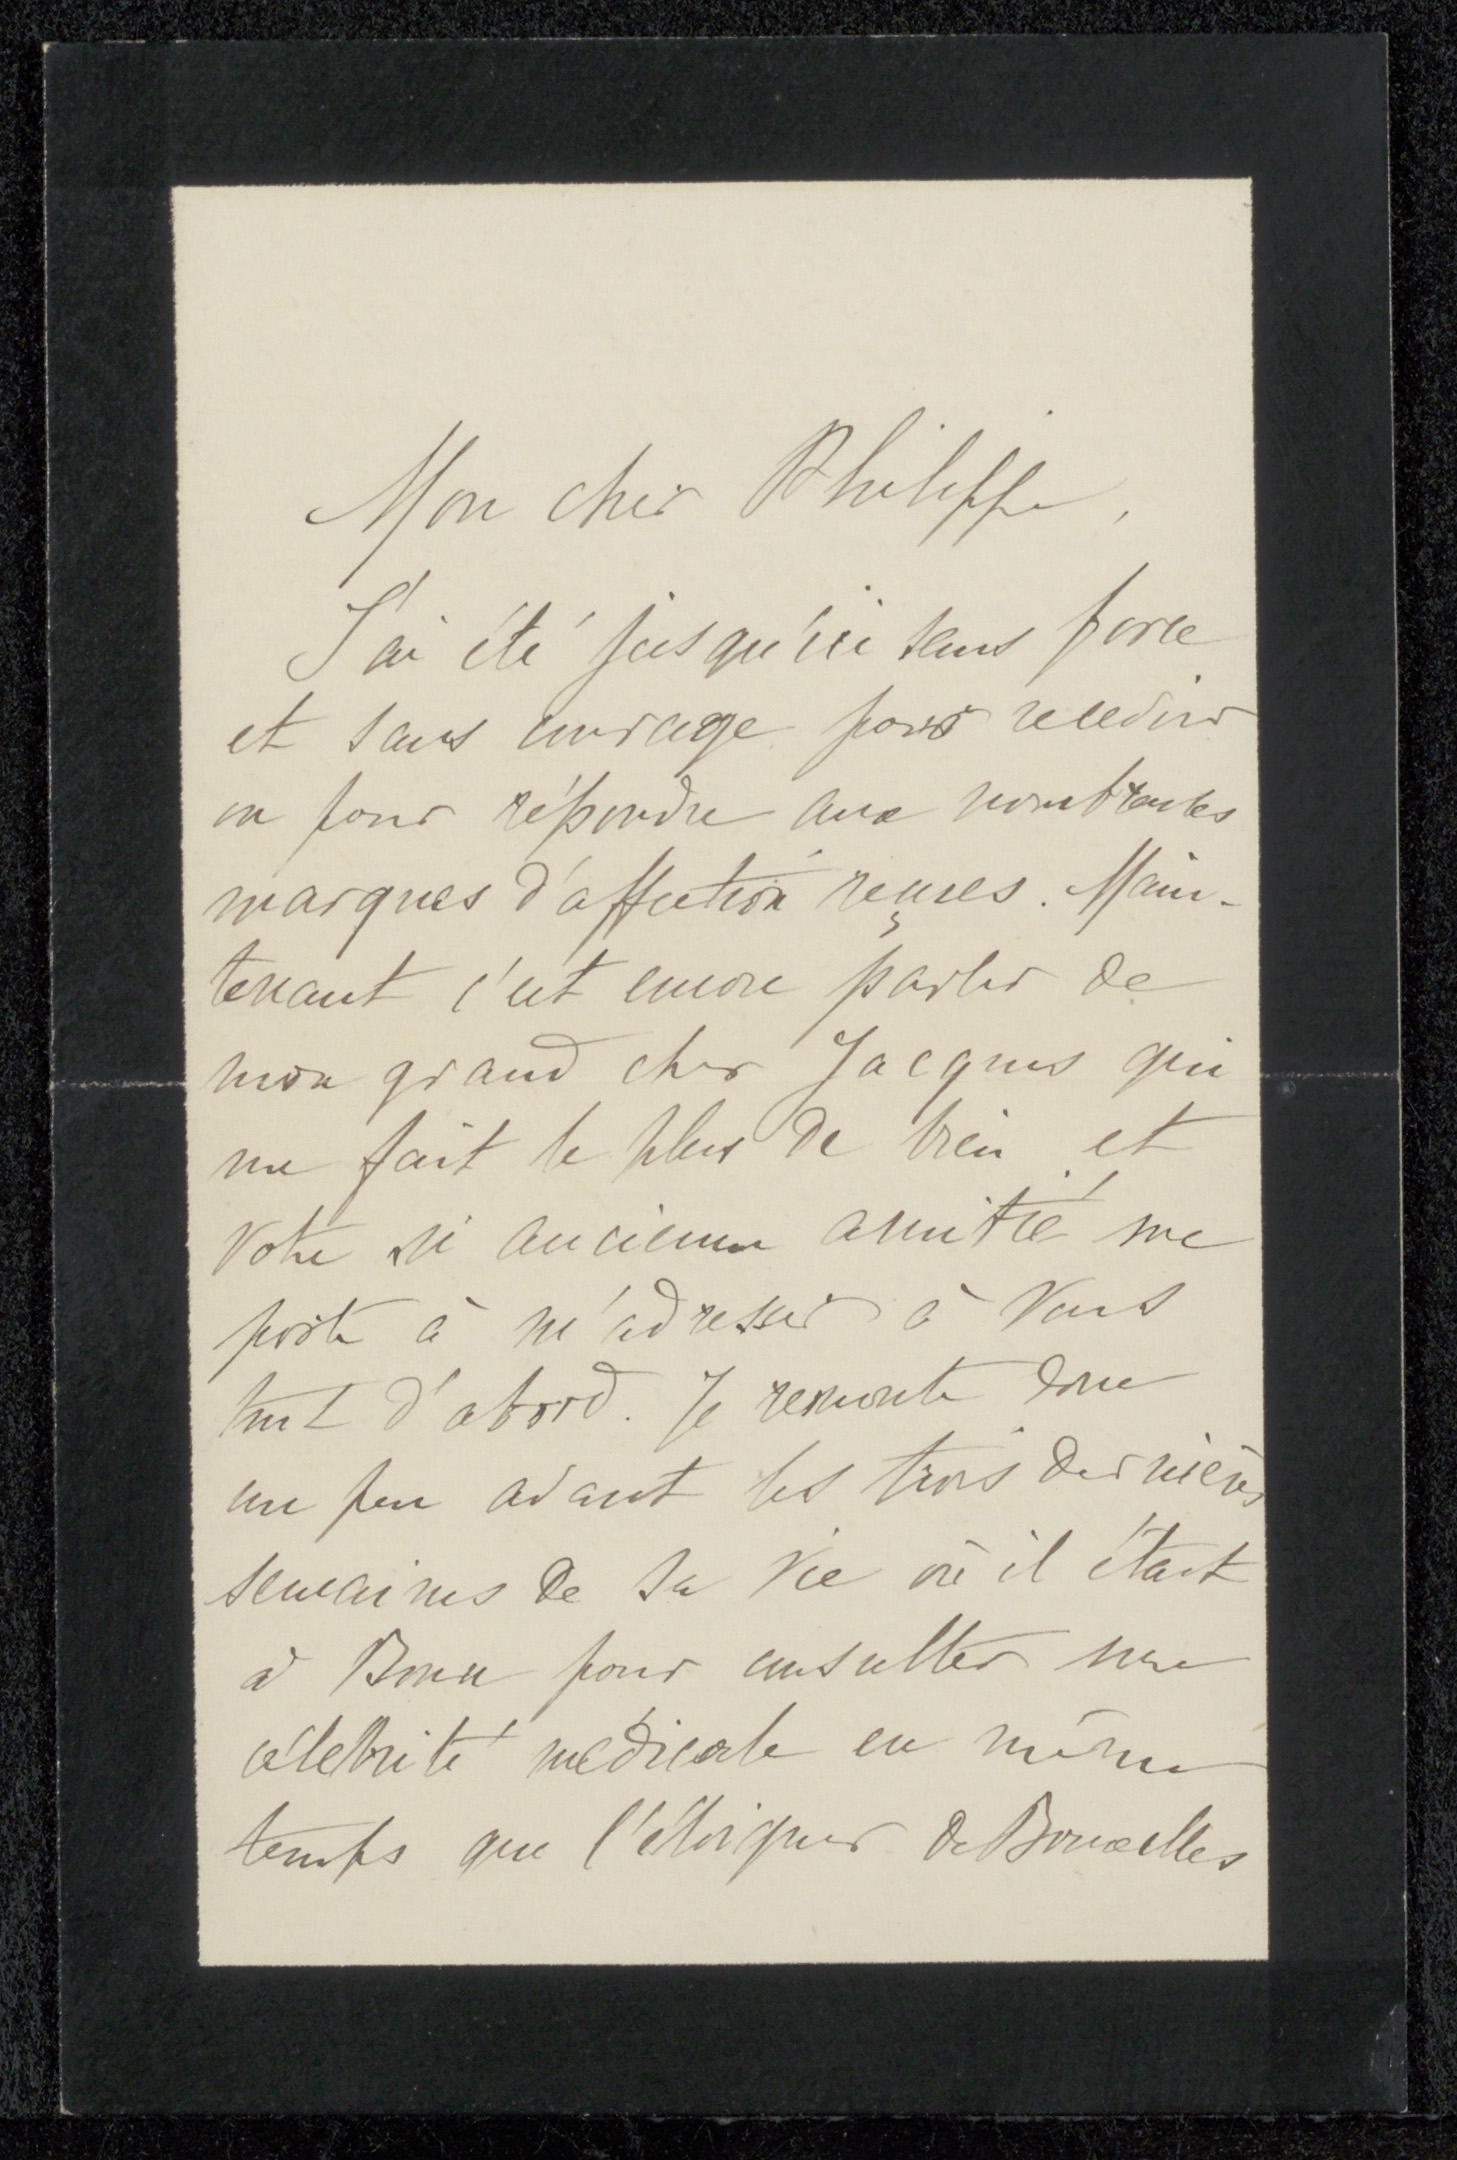 Mon cher Philippe,
J'ai été jusqu'ici sans force
et sans courage pour recevoir
ou pour répondre aux nombreuses
marques d'affection reçues. Main-
tenant c'est encore parler de
mon grand cher Jacques qui
me fait le plus de bien et
votre si ancienne amitié me
porte à m'adresser à Vous
tout d'abord. Je remonte donc
un peu avant les trois dernières
semaines de sa vie où il était
à Bonn pour consulter une
célébrité médicale en même
temps que l'éloigner de Bruxelles